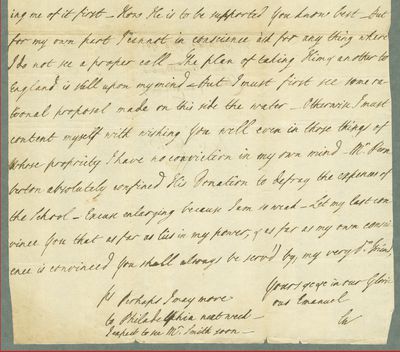 ing me of it first – How He is to be supported You know best – but
for my own part I cannot in conscience ask for any thing where
I do not see a proper call – The plan of taking Him & another to
England is still upon my mind – But I must first see some ra-
tional proposal made on this side the water – Otherwise I must
content myself with wishing You well even in those things of
whose propriety I have no conviction in my own mind – Mr Pem
berton absolutely confined His Donation to defray the expences of
the School – Excuse enlarging because I am so weak – Let my last con
vince You that as far as lies in my power, & as far as my own consci-
ence is convinced You shall always be serv'd by, my very Dr Friend,
Yours &c &c in our Glori
ous Emanuel
ps Perhaps I may move
to Philadelphia next week –
I expect to see Mr. Smith soon –